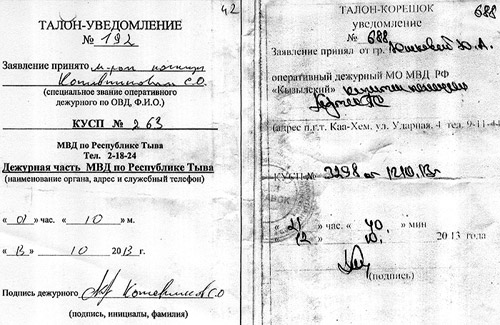 42
ТАЛОН-УВЕДОМЛЕНИЕ
№ 192
Заявление принято
С.О.
(специальное звание оперативного
дежурного по ОВД, Ф.И.О.)
КУСП № 263
МВД по Республике Тыва
Тел. 2-18-24
Дежурная часть МВД по Республике Тыва
(наименование органа, адрес и служебный телефон)
« 01 » час. « 10 » м.
« 13 » 10 2013 г.
Подпись дежурного С.О
(подпись, инициалы, фамилия)
688
ТАЛОН-КОРЕШОК
уведомление
№ 688
Заявление принял от гр. Ю.А.
оперативный дежурный МО МВД РФ
«Кызылский»
(адрес п.г.т. Каа-Хем, ул. Ударная, 4 тел. 9-11-44
КУСП № 3298 от 12.10.13г
« 21 » час. « 40 » мин
« 12 » 10. 2013 года
(подпись)